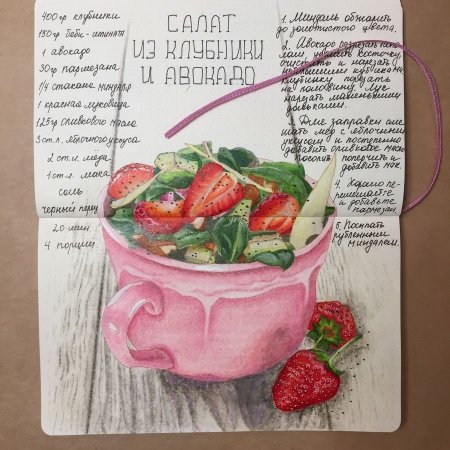 САЛАТ
ИЗ КЛУБНИКИ
И АВОКАДО
400 гр клубники
150 гр беби-шпината
1 авокадо
30 гр пармезана
1/4 стакана миндаля
1 красная луковица
125 гр оливкового масла
3 ст.л. яблочного уксуса
2 ст.л. меда
1 ст.л. мака
соль
черный перец
20 мин
4 порции.
1. Миндаль обжарить
до золотистого цвета.
2. Авокадо разрезать попо-
лам удалить косточку,
очистить и нарезать
небольшими кубиками.
Клубнику порезать
на половинки. Лук
нарезать маленькими
дольками.
3. Для заправки сме-
шать мед с яблочным
уксусом и постепенно
добавить оливковое масло
посолить, поперчить и
добавить мак.
4. Хорошо пе-
ремешайте
и добавьте
пармезан.
5. Посыпать
рубленным
миндалем.